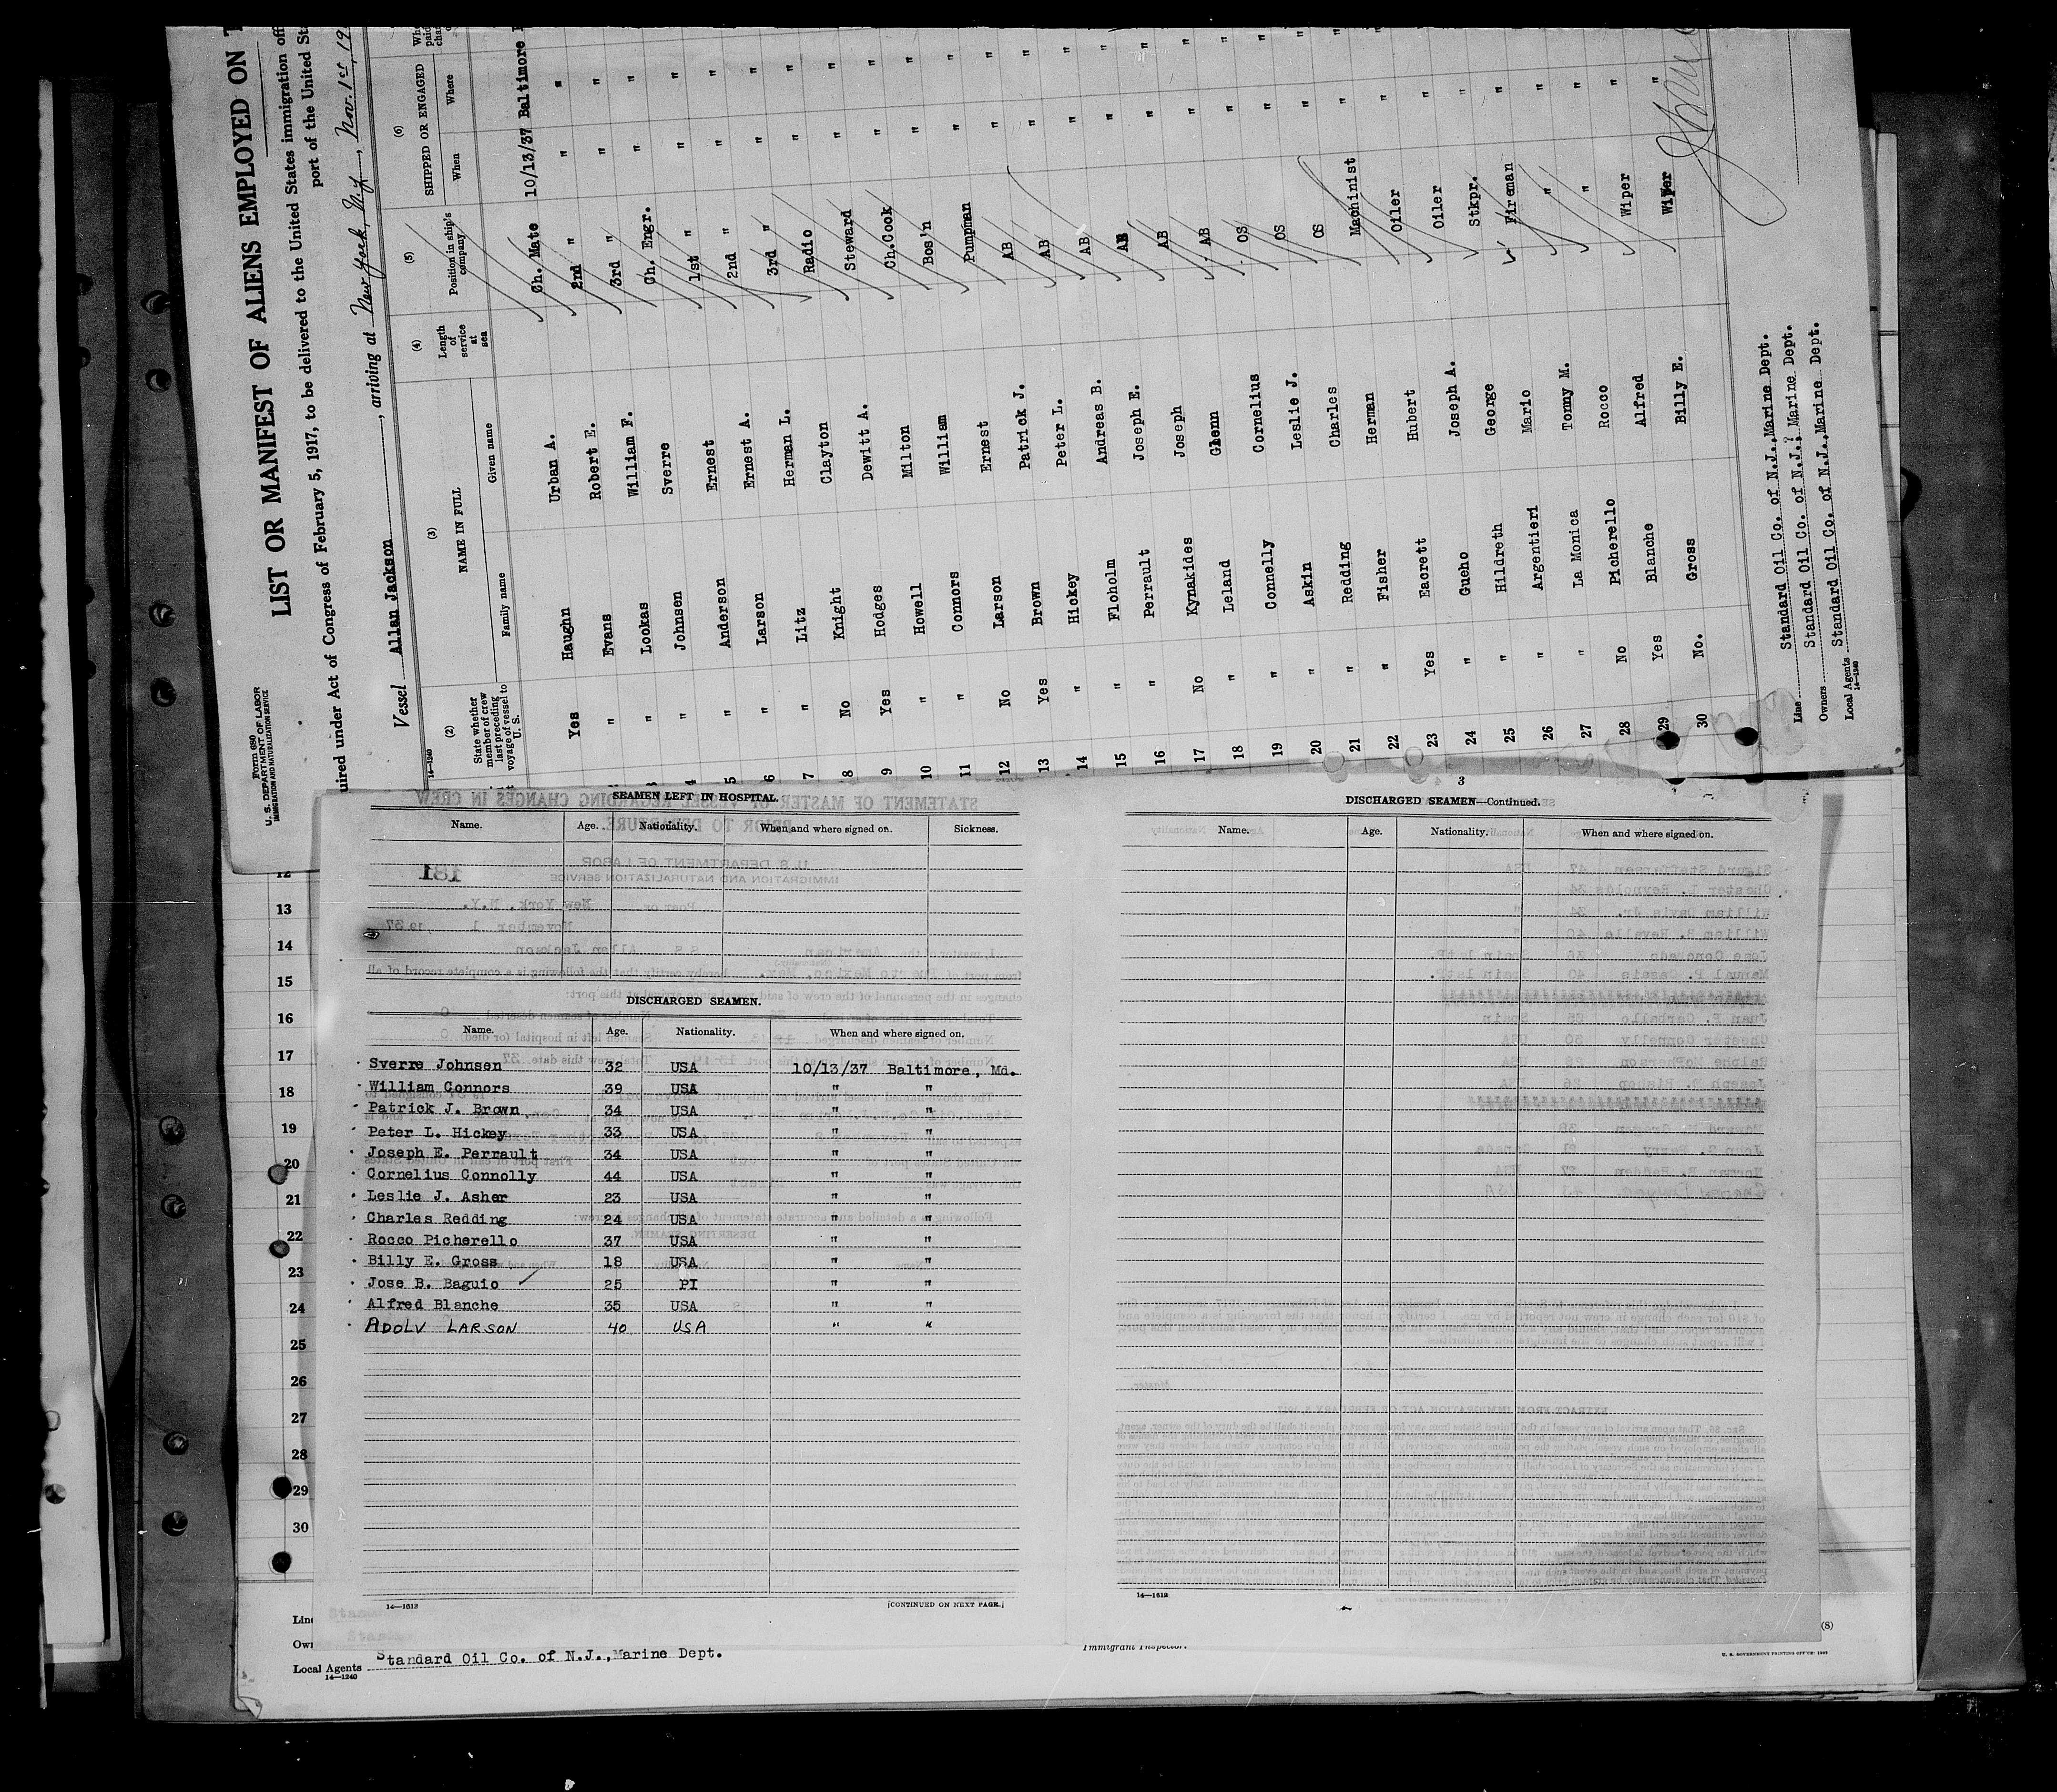 Form 680
U. S. DEPARTMENT OF LABOR
IMMIGRATION AND NATURALIZATION SERVICE
LIST OR MANIFEST OF ALIENS EMPLOYED ON T
uired under Act of Congress of February 5, 1917, to be delivered to the United States immigration off
port of the United St
Vessel Allan Jackson, arriving at New York, N.Y., Nov. 1st, 19
14—1240
(2) (3) (4) (5) (6)
State whether member of crew last preceding voyage of vessel to U. S.
NAME IN FULL
Family name Given name
Length of service at sea
Position in ship's company
SHIPPED OR ENGAGED
When Where
Yes Haughn Urban A. Ch. Mate 10/13/37 Baltimore
" Evans Robert E. 2nd " " "
" Lookas William F. 3rd " " "
4 " Johnsen Sverre Ch. Engr. " "
5 " Anderson Ernest 1st " " "
6 " Larson Ernest A. 2nd " " "
7 " Litz Herman L. 3rd " " "
8 No Knight Clayton Radio " "
9 Yes Hodges Dewitt A. Steward " "
10 " Howell Milton Ch.Cook " "
11 " Connors William Bos'n " "
12 No Larson Ernest Pumpman " "
13 Yes Brown Patrick J. AB " "
14 " Hickey Peter L. AB " "
15 " Floholm Andreas B. AB " "
16 " Perrault Joseph E. AB " "
17 No Kynakides Joseph AB " "
18 " Leland Glenn AB " "
19 " Connelly Cornelius OS " "
20 " Askin Leslie J. OS " "
21 " Redding Charles OS " "
22 " Fisher Herman Machinist " "
23 Yes Eacrett Hubert Oiler " "
24 " Gueho Joseph A. Oiler " "
25 " Hildreth George Stkpr. " "
26 " Argentieri Mario Fireman " "
27 " La Monica Tonny M. " " "
28 No Picherello Rocco " " "
29 Yes Blanche Alfred Wiper " "
30 No. Gross Billy E. Wiper " "
Line Standard Oil Co. of N.J.,Marine Dept.
Owners Standard Oil Co. of N.J.? Marine Dept.
Local Agents Standard Oil Co. of N.J.,Marine Dept.
14—1240
SEAMEN LEFT IN HOSPITAL.
Name. Age. Nationality. When and where signed on. Sickness.
DISCHARGED SEAMEN.
Name. Age. Nationality. When and where signed on.
Sverre Johnsen 32 USA 10/13/37 Baltimore, Md.
William Connors 39 USA " "
Patrick J. Brown 34 USA " "
Peter L. Hickey 33 USA " "
Joseph E. Perrault 34 USA " "
Cornelius Connolly 44 USA " "
Leslie J. Asher 23 USA " "
Charles Redding 24 USA " "
Rocco Picherello 37 USA " "
Billy E. Gross 18 USA " "
Jose B. Baguio 25 PI " "
Alfred Blanche 35 USA " "
ADOLV LARSON 40 USA " "
14—1613
[CONTINUED ON NEXT PAGE.]
3
DISCHARGED SEAMEN—Continued.
Name. Age. Nationality. When and where signed on.
14—1613
12
13
14
15
16
17
18
19
20
21
22
23
24
25
26
27
28
29
30
Line
Own
Local Agents Standard Oil Co. of N.J.,Marine Dept.
14—1240
Immigrant Inspector.
(8)
U. S. GOVERNMENT PRINTING OFFICE: 1937